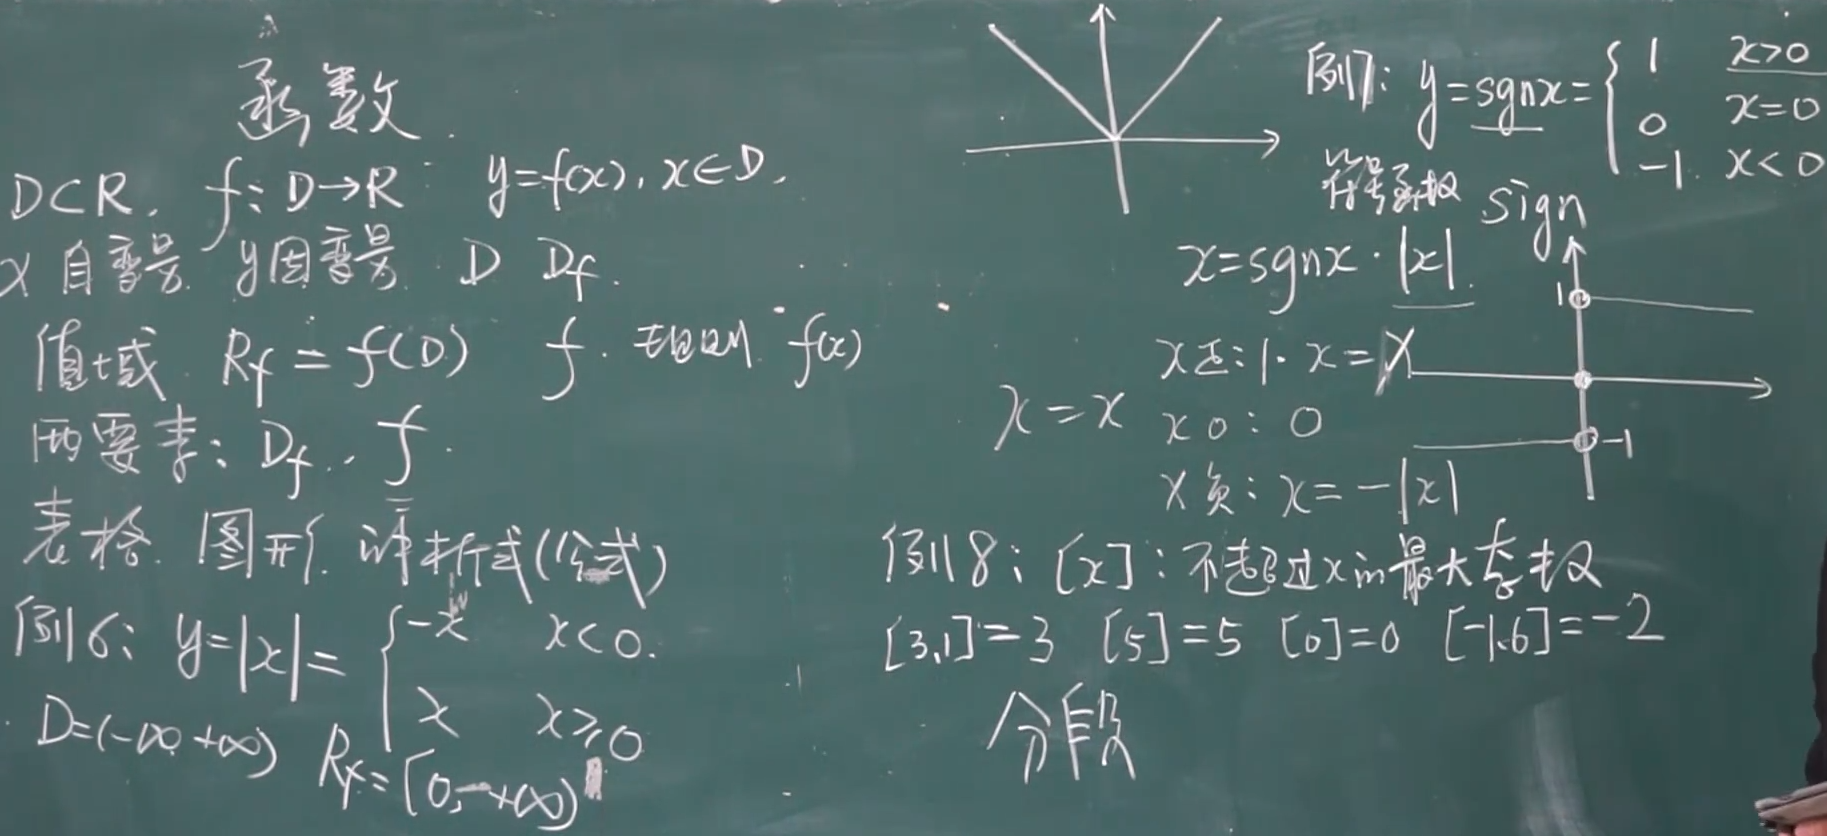 函数
D⊂R. f: D→R y=f(x), x∈D.
x 自变量 y因变量 D Df.
值域 Rf = f(D) f. 规则 f(x)
两要素: Df, f.
表格 图形 解析式(公式)
例6: y=|x|= { -x x<0.
x x≥0
D=(-∞ +∞) Rf=[0, +∞)
例7: y=sgnx= { 1 x>0
0 x=0
-1 x<0
符号函数 sign
x=sgnx·|x|
1
x正: 1·x=x
x=x x0: 0
-1
x负: x=-|x|
例8: [x]: 不超过x的最大整数
[3.1]=3 [5]=5 [0]=0 [-1.6]=-2
分段